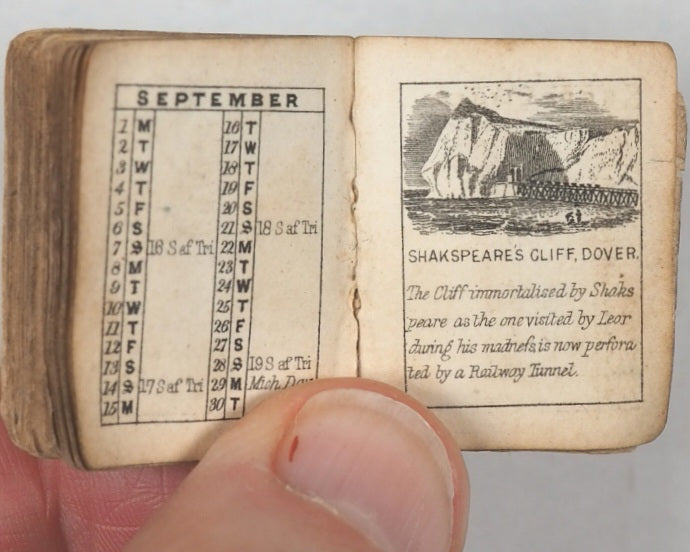 SEPTEMBER
1 M
2 T
3 W
4 T
5 F
6 S
7 S 16 S af Tri
8 M
9 T
10 W
11 T
12 F
13 S
14 S 17 S af Tri
15 M
16 T
17 W
18 T
19 F
20 S
21 S 18 S af Tri
22 M
23 T
24 W
25 T
26 F
27 S
28 S 19 S af Tri
29 M Mich Day
30 T
SHAKSPEARE'S CLIFF, DOVER.
The Cliff immortalised by Shaks
peare as the one visited by Lear
during his madneſs, is now perfora
ted by a Railway Tunnel.